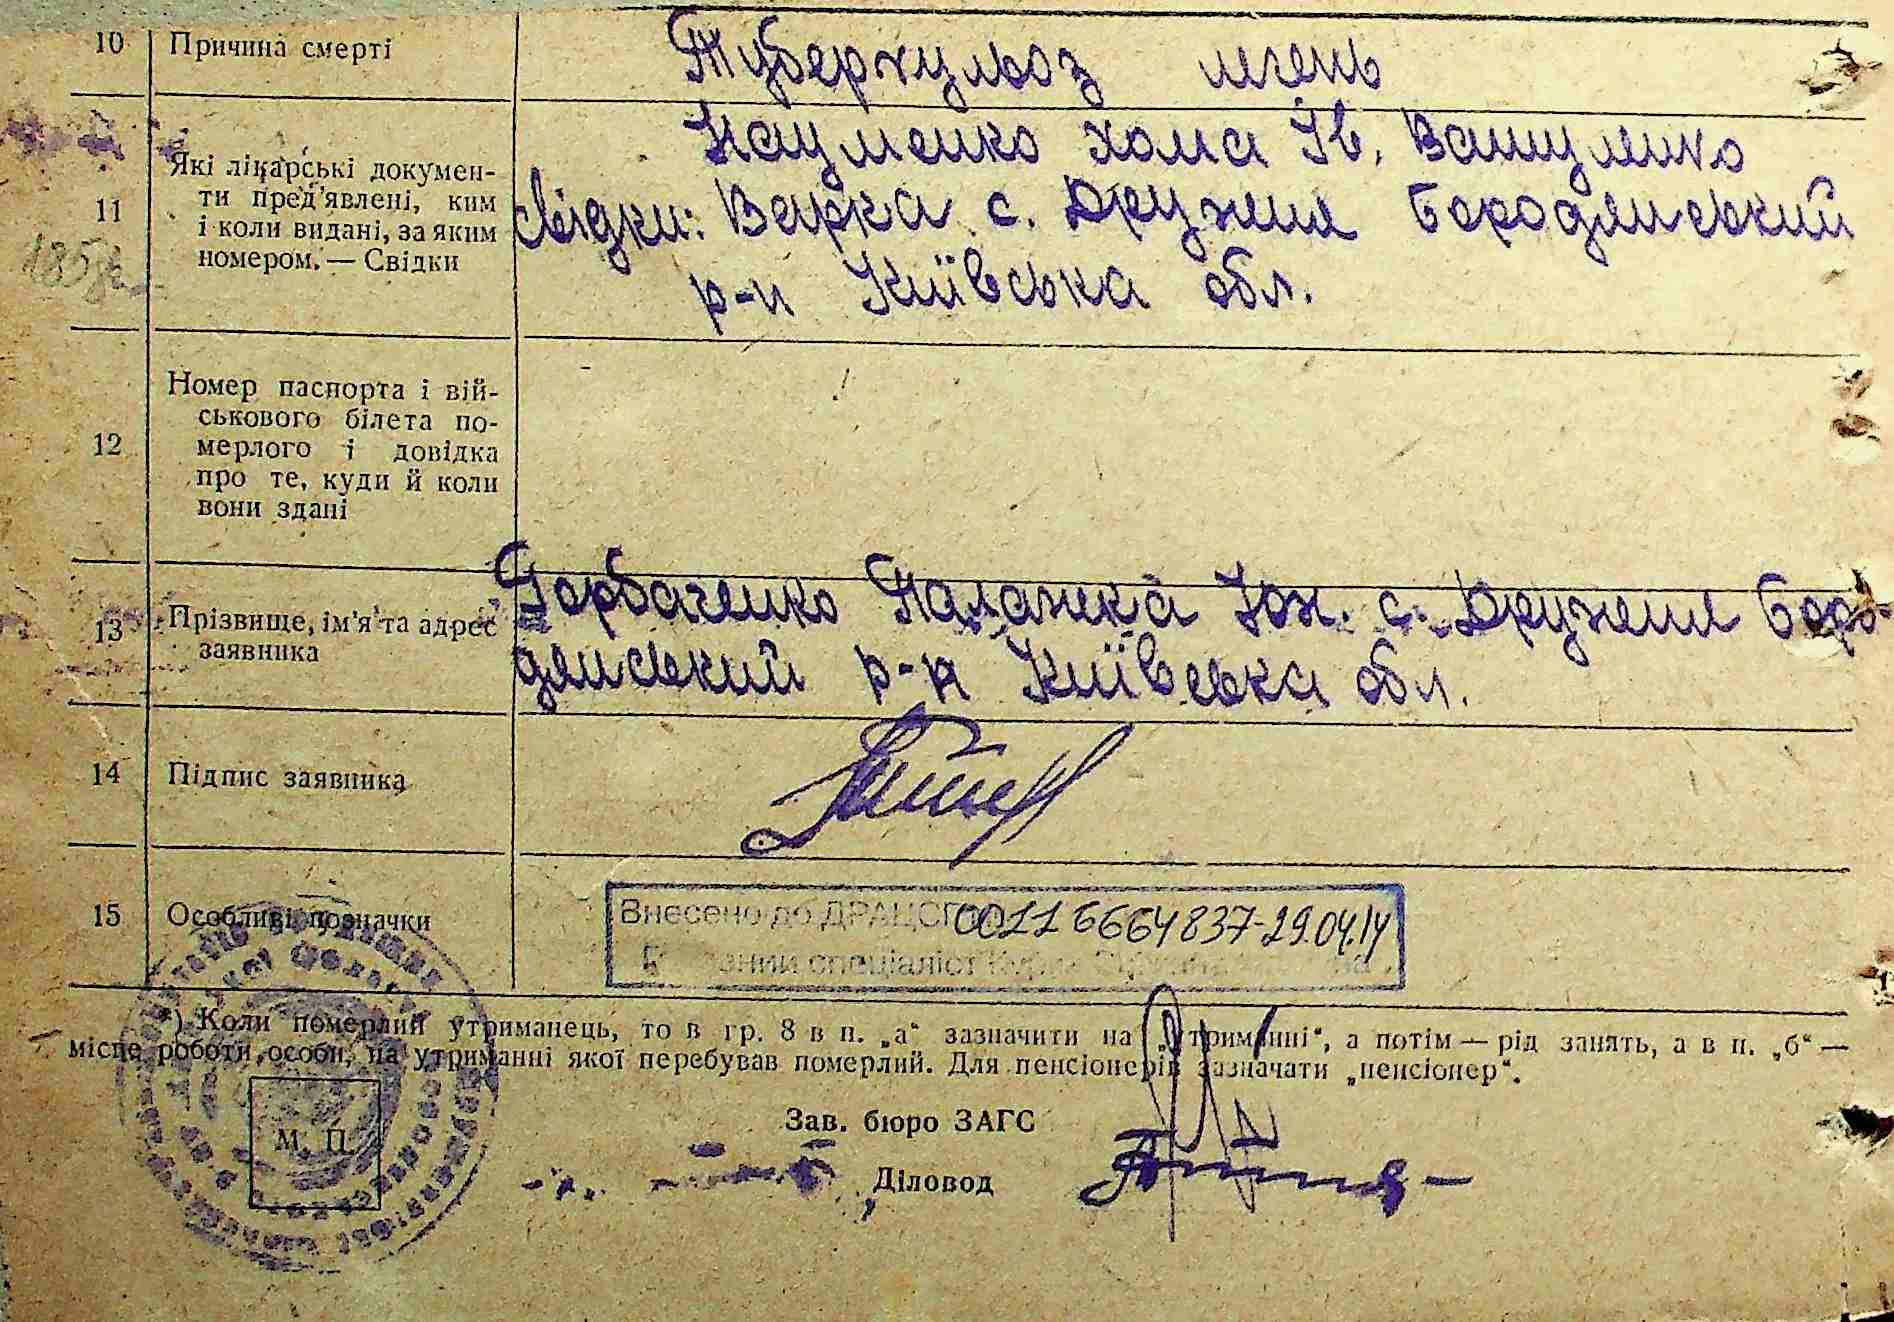 10 Причина смерті Туберкульоз легень
Науменко Хома Ів. Вашуленко
11 Які лікарські докумен-
ти пред'явлені, ким
і коли видані, за яким
номером. — Свідки
свідки: Варка с. Дружня Бородянський
р-н Київська обл.
12 Номер паспорта і вій-
ськового білета по-
мерлого і довідка
про те, куди й коли
вони здані
13 Прізвище, ім'я та адрес
заявника
Горбаченко Палажка Юх. с. Дружня Боро-
дянський р-н Київська обл.
14 Підпис заявника
15 Особливі позначки
Внесено до ДРАЦСГ 00116664837-29.04.14
спеціаліст
*) Коли померлий утриманець, то в гр. 8 в п. „а“ зазначити на „утриманні“, а потім — рід занять, а в п. „б“ —
місце роботи особи, на утриманні якої перебував померлий. Для пенсіонерів зазначати „пенсіонер“.
М. П.
Зав. бюро ЗАГС
Діловод